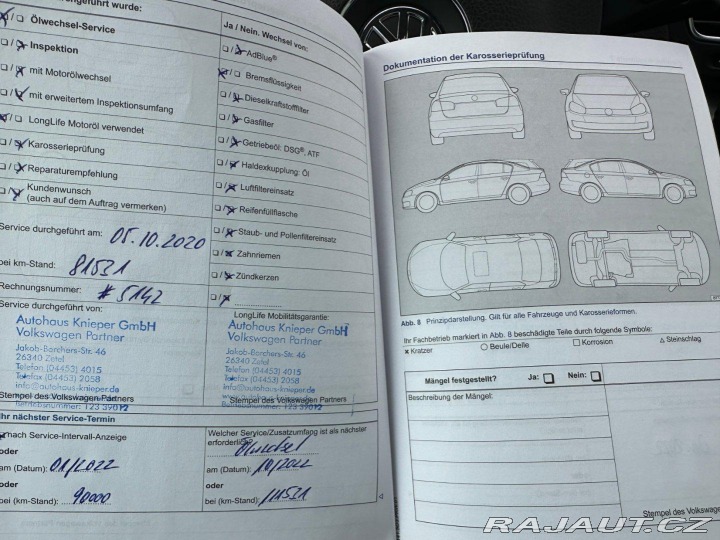 geführt wurde:
Ölwechsel-Service
Inspektion
mit Motorölwechsel
mit erweitertem Inspektionsumfang
LongLife Motoröl verwendet
Karosserieprüfung
Reparaturempfehlung
Kundenwunsch
(auch auf dem Auftrag vermerken)
Service durchgeführt am: 05.10.2020
bei km-Stand: 81531
Rechnungsnummer: #5142
Service durchgeführt von:
Autohaus Knieper GmbH
Volkswagen Partner
Jakob-Borchers-Str. 46
26340 Zetel
Telefon (04453) 4015
Telefax (04453) 2058
info@autohaus-knieper.de
Stempel des Volkswagen Partners
Betriebsnummer: 123 39012
Ja / Nein. Wechsel von:
AdBlue®
Bremsflüssigkeit
Dieselkraftstofffilter
Gasfilter
Getriebeöl: DSG®, ATF
Haldexkupplung: Öl
Luftfiltereinsatz
Reifenfüllflasche
Staub- und Pollenfiltereinsatz
Zahnriemen
Zündkerzen
LongLife Mobilitätsgarantie:
Autohaus Knieper GmbH
Volkswagen Partner
Jakob-Borchers-Str. 46
26340 Zetel
Telefon (04453) 4015
Telefax (04453) 2058
info@autohaus-knieper.de
Stempel des Volkswagen Partners
Ihr nächster Service-Termin
nach Service-Intervall-Anzeige
oder
am (Datum): 01/2022
oder
bei (km-Stand): 90000
Welcher Service/Zusatzumfang ist als nächster
erforderlich
am (Datum): 10/2022
oder
bei (km-Stand): 111531
Dokumentation der Karosserieprüfung
Abb. 8 Prinzipdarstellung. Gilt für alle Fahrzeuge und Karosserieformen.
Ihr Fachbetrieb markiert in Abb. 8 beschädigte Teile durch folgende Symbole:
x Kratzer ○ Beule/Delle □ Korrosion △ Steinschlag
Mängel festgestellt? Ja: □ Nein: □
Beschreibung der Mängel:
Stempel des Volkswagen
RAJAUT.CZ